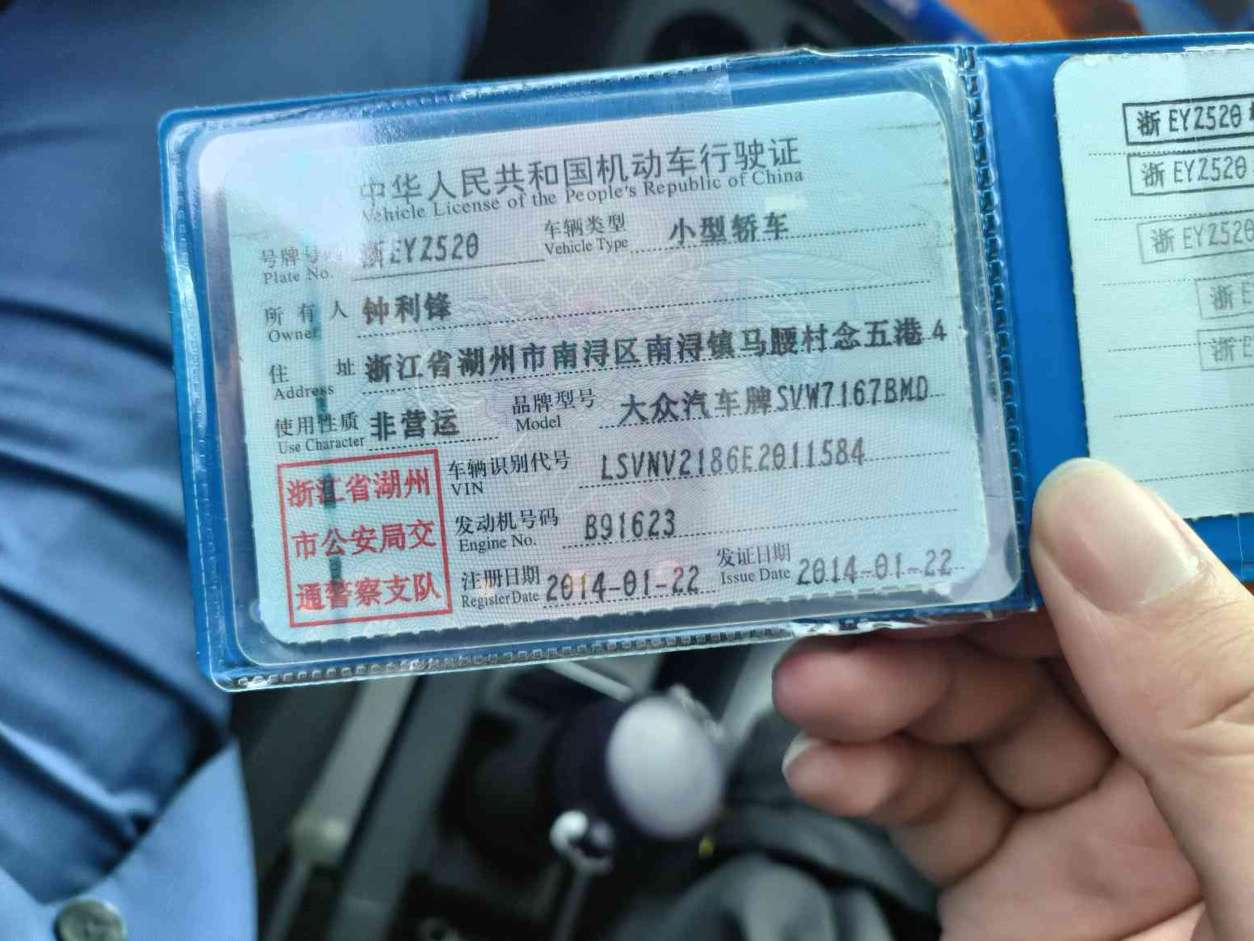 中华人民共和国机动车行驶证
Vehicle License of the People's Republic of China
号牌号码 浙EYZ520 车辆类型 小型轿车
Plate No. Vehicle Type
所有人 钟利锋
Owner
住址 浙江省湖州市南浔区南浔镇马腰村念五港4
Address
使用性质 非营运 品牌型号 大众汽车牌SVW7167BMD
Use Character Model
浙江省湖州
市公安局交
通警察支队
车辆识别代号 LSVNV2186E2011584
VIN
发动机号码 B91623
Engine No.
注册日期 2014-01-22 发证日期 2014-01-22
Register Date Issue Date
浙EYZ520
浙EYZ520
浙EYZ520
浙E
浙E